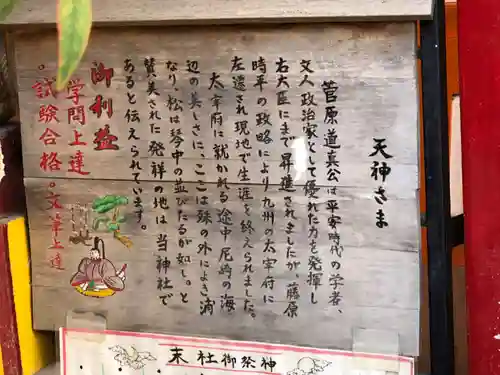 天神さま
菅原道真公は平安時代の学者、
文人政治家として優れた力を発揮し
右大臣にまで昇進されましたが。藤原
時平の政略により九州の太宰府に
左遷され現地で生涯を終えられました。
太宰府に赴かれる途中尼崎の海
辺の美しさに、ここは殊の外によき浦
なり、松は琴中の並びたるが如し。と
賛美された発祥の地は当神社で
あると伝えられています。
御利益
学問上達
試験合格。文章上達。
末社御祭神